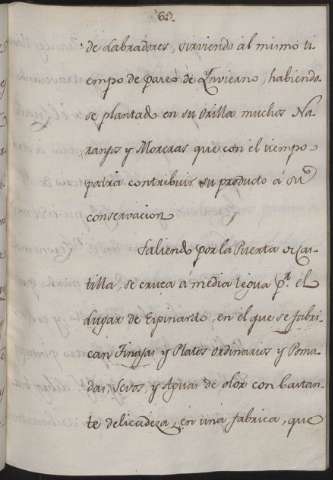 65.
de Labradores, sirviendo al mismo ti
empo de paseo de Invierno, habiendo
se plantado en su orilla muchos Na
ranjos y Moreras que con el tiempo
podrà contribuir su producto á su
conservacion
Saliendo por la Puerta de Cas
tilla, se cruza á media legua pr. el
Lugar de Espinardo, en el que se fabri
can Tinajas y Platos ordinarios y Poma
das, Sevos, y Agua de olor con bastan
te delicadeza, en una fabrica, que